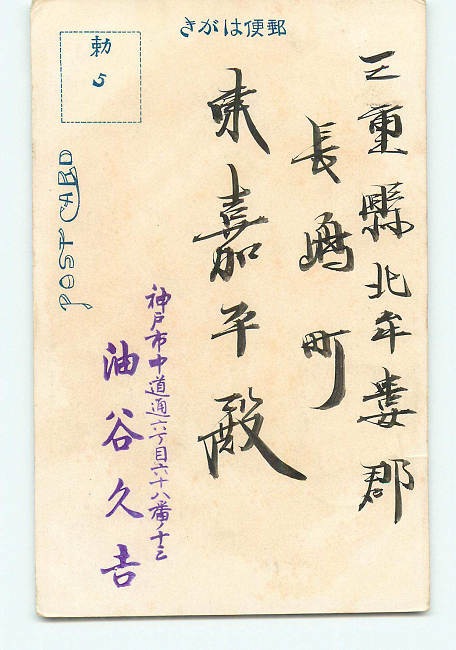 郵便はがき
勅
5
POST CARD
三重縣北牟婁郡
長嶋町
東嘉平殿
神戸市中道通六丁目六十八番ノ十三
油谷久吉